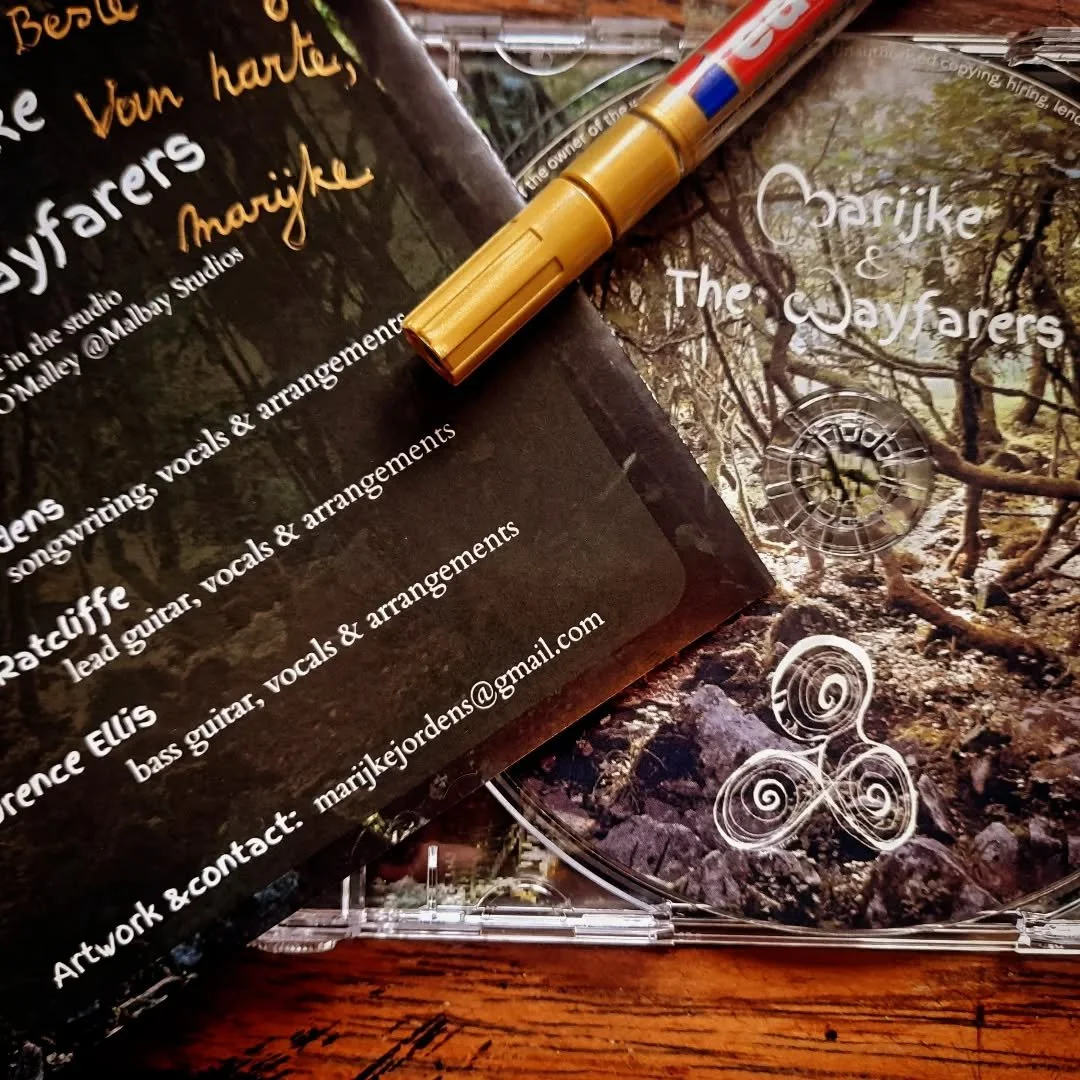 Beste
Van harte,
marijke
ke
ayfarers
in the studio
O'Malley @Malbay Studios
dens
songwriting, vocals & arrangements
Ratcliffe
lead guitar, vocals & arrangements
rence Ellis
bass guitar, vocals & arrangements
Artwork &contact: marijkejordens@gmail.com
ed
the owner of the
unauthorised copying, hiring, lend
Marijke
&
The Wayfarers